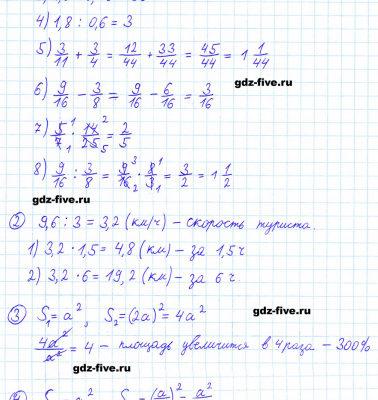 4) 1,8 : 0,6 = 3
5) 3/11 + 3/4 = 12/44 + 33/44 = 45/44 = 1 1/44
gdz-five.ru
6) 9/16 − 3/8 = 9/16 − 6/16 = 3/16
7) 5/7 · 14/25 = 2/5
8) 9/16 : 3/8 = 9/16 · 8/3 = 3/2 = 1 1/2
gdz-five.ru
② 9,6 : 3 = 3,2 (км/ч) − скорость туриста.
1) 3,2 · 1,5 = 4,8 (км) − за 1,5 ч
2) 3,2 · 6 = 19,2 (км) − за 6 ч.
③ S₁ = a², S₂ = (2a)² = 4a²
gdz-five.ru
4a²/a² = 4 − площадь увеличится в 4 раза − 300%
gdz-five.ru